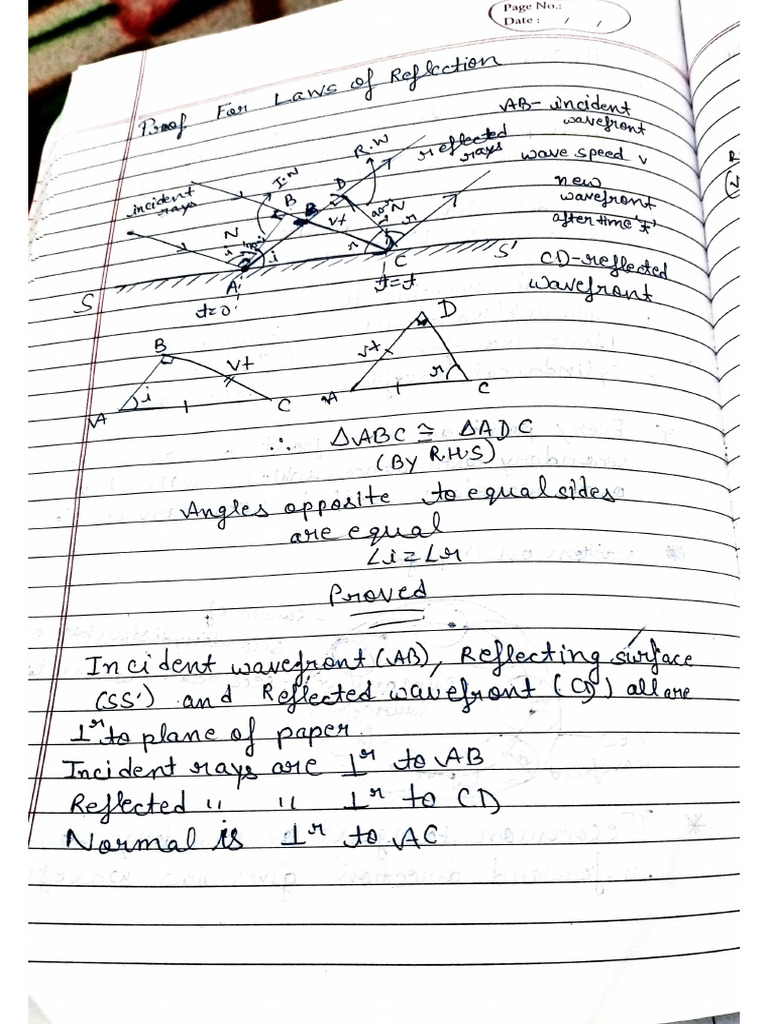 Page No.:
Date : / /
Proof For Laws of Reflection
AB- incident
wavefront
wave speed v
new
wavefront
after time 't'
CD-reflected
wavefront
incident
rays
I.W
R.W
reflected
rays
N
B
B
D
vt
90°
N
r
i
i
r
A
C
S
S'
t=0
t=t
B
vt
i
A
C
D
vt
r
A
C
∴ ΔABC ≅ ΔADC
(By R.H.S)
Angles opposite to equal sides
are equal
∠i = ∠r
Proved
Incident wavefront (AB), Reflecting surface
(SS') and Reflected wavefront (CD) all are
⊥r to plane of paper.
Incident rays are ⊥r to AB
Reflected " " ⊥r to CD
Normal is ⊥r to AC